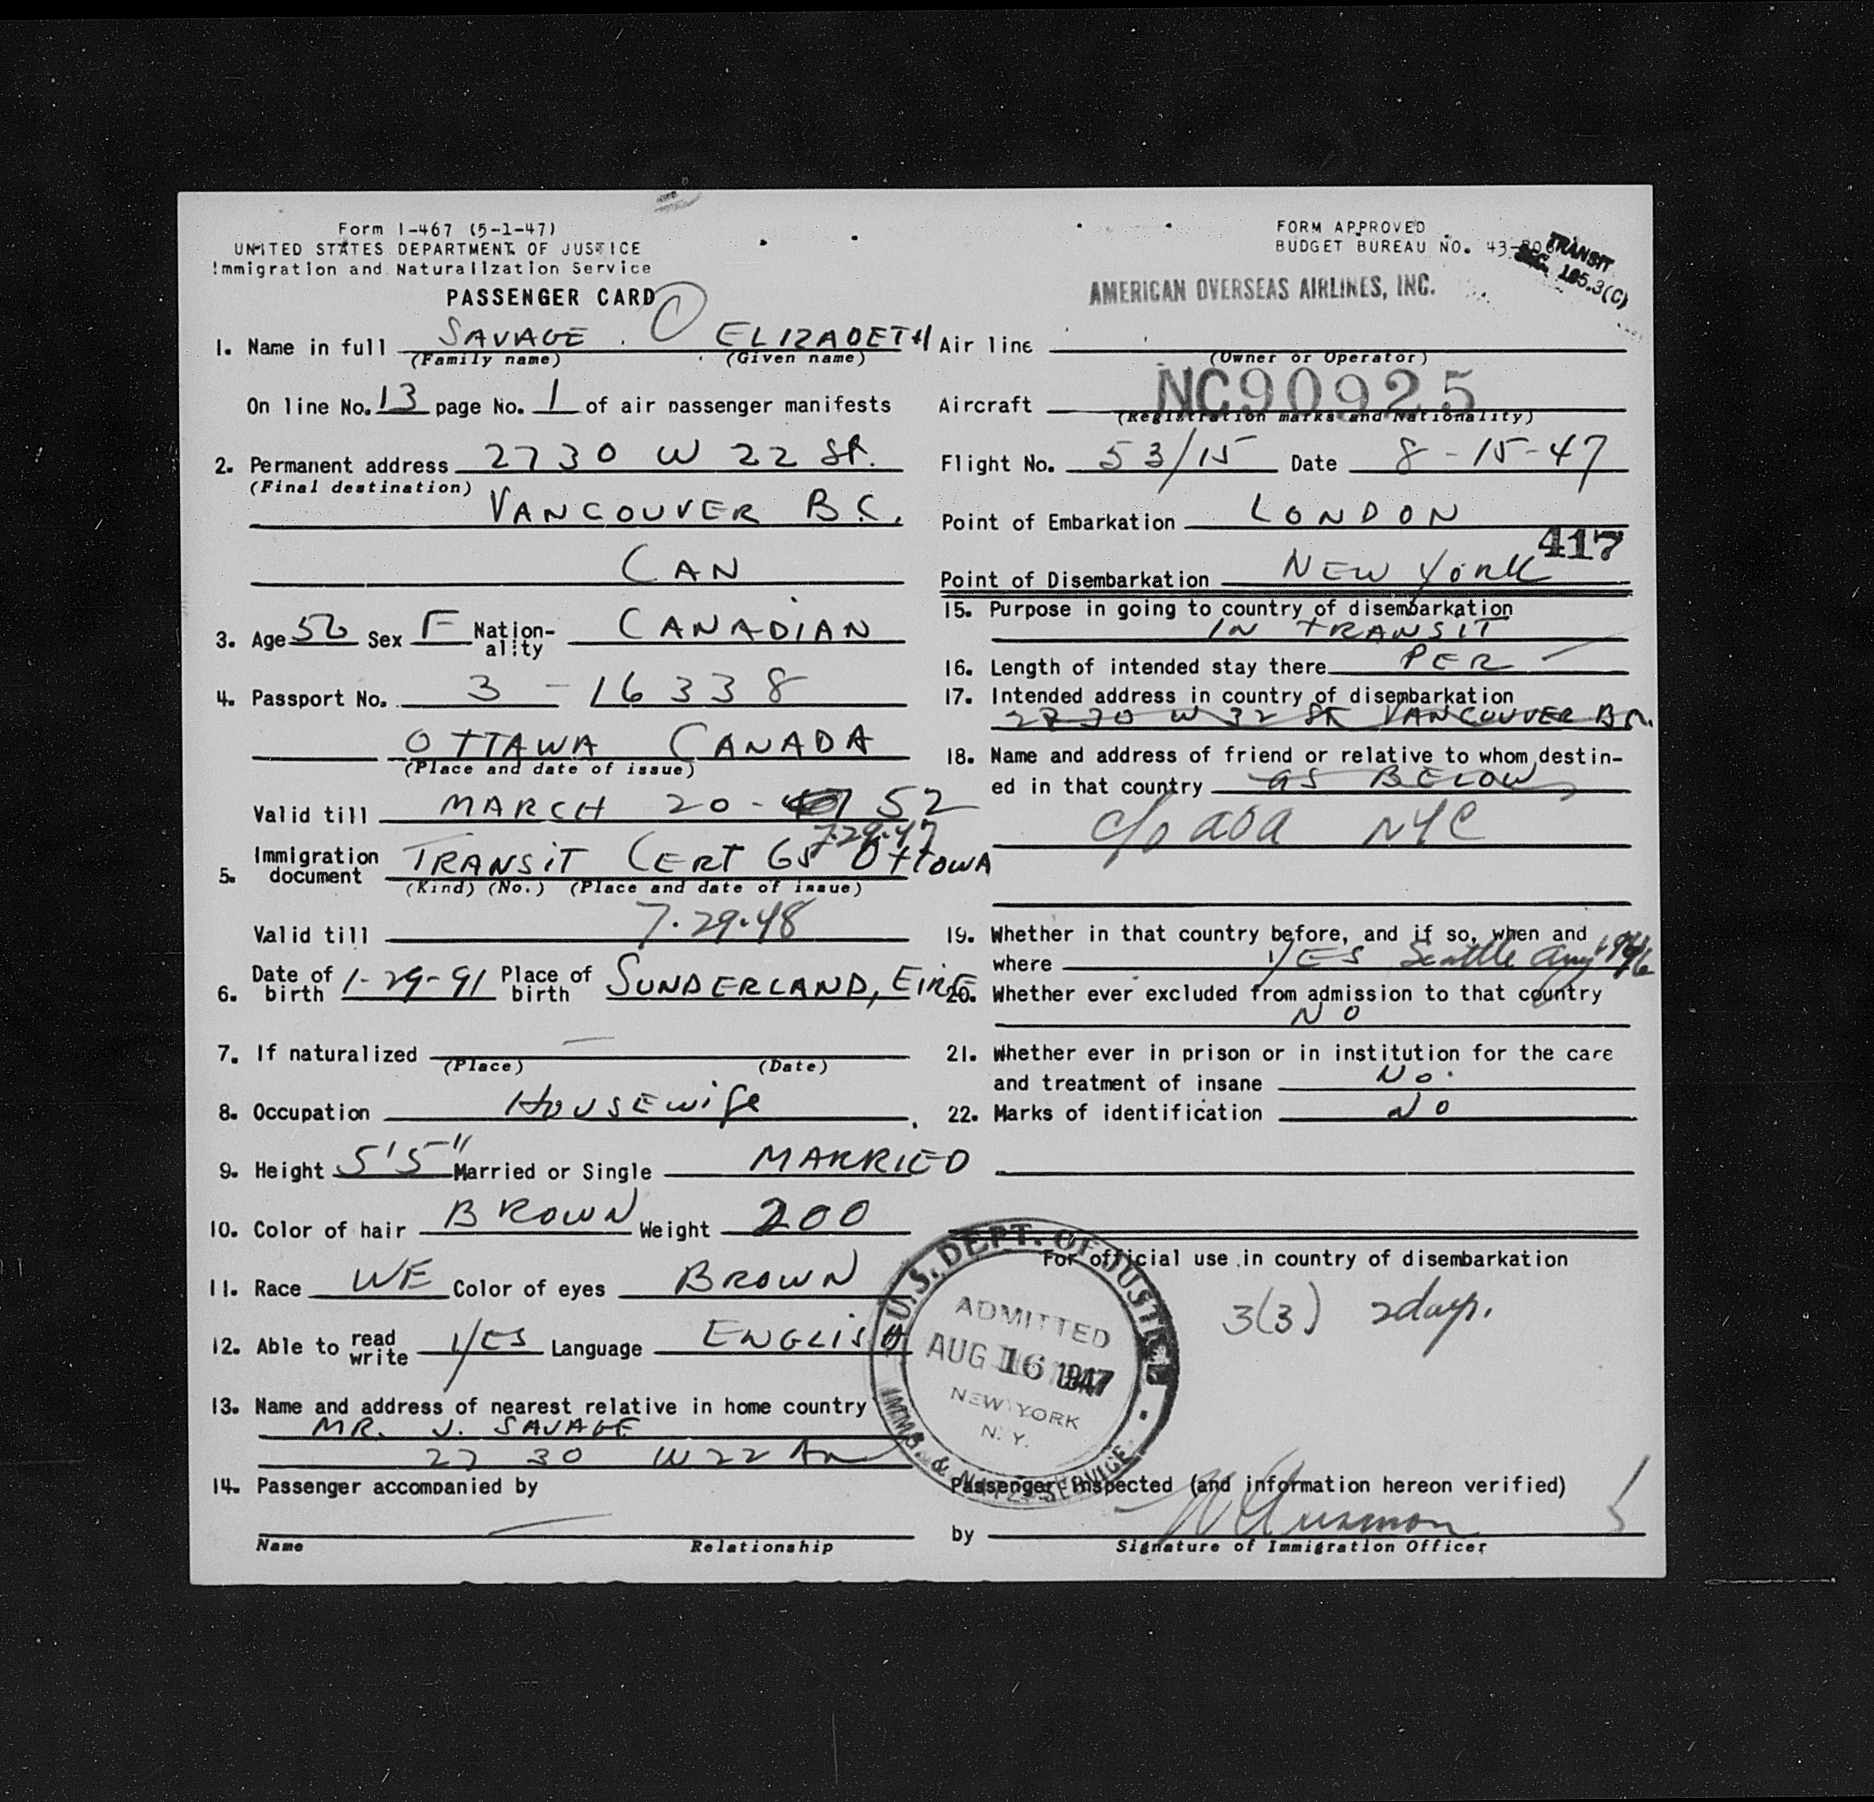 Form I-467 (5-1-47)
UNITED STATES DEPARTMENT OF JUSTICE
Immigration and Naturalization Service
PASSENGER CARD
FORM APPROVED
BUDGET BUREAU NO. 43-
TRANSIT
SEC. 105.3(C)
AMERICAN OVERSEAS AIRLINES, INC.
1. Name in full SAVAGE ELIZABETH
(Family name) (Given name)
On line No. 13 page No. 1 of air passenger manifests
2. Permanent address 2730 W 22 St.
(Final destination)
VANCOUVER B.C.
CAN
3. Age Sex F Nation-ality CANADIAN
4. Passport No. 3-16338
OTTAWA CANADA
(Place and date of issue)
Valid till MARCH 20 - 52
7-29-47
5. Immigration document TRANSIT CERT 65 OTTOWA
(Kind) (No.) (Place and date of issue)
Valid till 7-29-48
6. Date of birth 1-29-91 Place of birth SUNDERLAND, EIRE
7. If naturalized —
(Place) (Date)
8. Occupation HOUSEWIFE
9. Height 5'5" Married or Single MARRIED
10. Color of hair BROWN Weight 200
11. Race WE Color of eyes BROWN
12. Able to read write YES Language ENGLISH
13. Name and address of nearest relative in home country
MR. J. SAVAGE
2730 W 22 Av
14. Passenger accompanied by
—
Name Relationship
Air line
(Owner or Operator)
Aircraft NC90925
(Registration marks and Nationality)
Flight No. 53/15 Date 8-15-47
Point of Embarkation LONDON
417
Point of Disembarkation NEW YORK
15. Purpose in going to country of disembarkation
IN TRANSIT
16. Length of intended stay there PER —
17. Intended address in country of disembarkation
2730 W 32 St VANCOUVER B.C.
18. Name and address of friend or relative to whom destin-
ed in that country AS BELOW
c/o AOA NYC
19. Whether in that country before, and if so, when and
where YES Seattle 1946
20. Whether ever excluded from admission to that country
NO
21. Whether ever in prison or in institution for the care
and treatment of insane NO.
22. Marks of identification NO
For official use in country of disembarkation
3(3) 2 days.
U.S. DEPT. OF JUSTICE
ADMITTED
AUG 16 1947
NEW YORK
N.Y.
IMM. & NATZ. SERVICE
Passenger inspected (and information hereon verified)
by
Signature of Immigration Officer